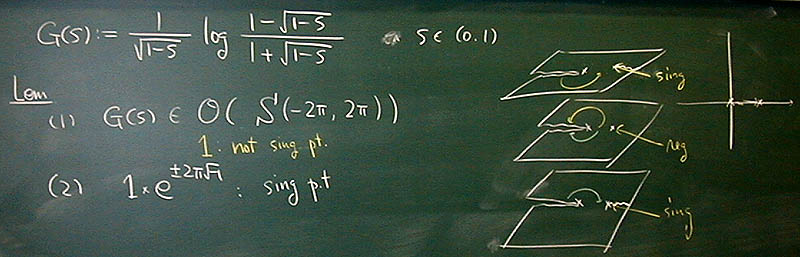 G(s) := 1/√(1-s) log (1-√(1-s))/(1+√(1-s)) s ∈ (0.1)
Lem
(1) G(s) ∈ O( S(-2π, 2π))
1 : not sing pt.
(2) 1×e^{±2π√-1} : sing p.t
sing
reg
sing